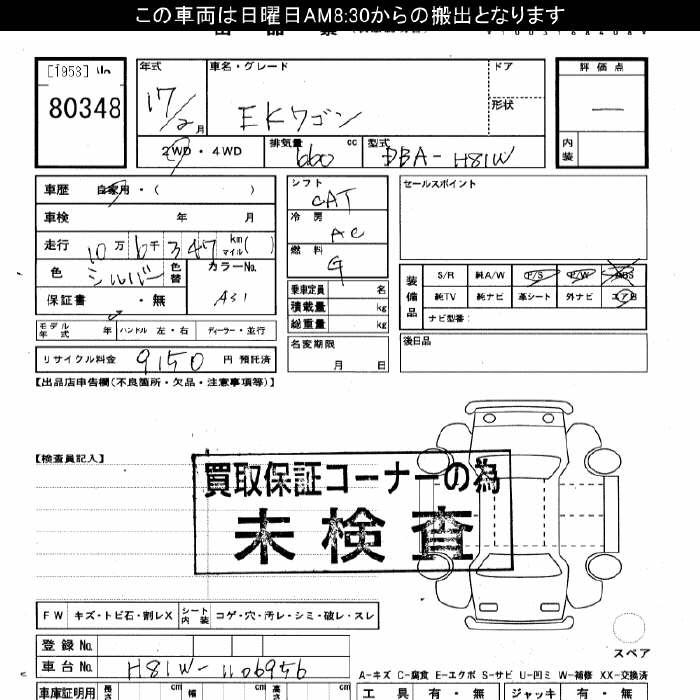 この車両は日曜日AM8:30からの搬出となります
[1953]
80348
年式 車名・グレード ドア 評価点
17/2月 EKワゴン 形状 —
2WD・4WD 排気量 660 cc 型式 DBA-H81W 内装
車歴 自家用・( ) シフト CAT セールスポイント
車検 年 月 冷房 AC
走行 10万6千347 km マイル ( ) 燃料 G
色 シルバー 色替 カラーNo. A31
装備品 S/R 純A/W P/S P/W ABS
保証書 ・無 乗車定員 名
純TV 純ナビ 革シート 外ナビ エアB
積載量 kg
ナビ型番:
総重量 kg
モデル年式 年 ハンドル 左・右 ディーラー・並行
後日品
リサイクル料金 9150 円 預託済 名変期限 月 日
【出品店申告欄(不良箇所・欠品・注意事項等)】
【検査員記入】
買取保証コーナーの為
未検査
FW キズ・トビ石・割レX シート内装 コゲ・穴・汚レ・シミ・破レ・スレ
登録No.
スペア
車台No. H81W-1106956
A-キズ C-腐食 E-エクボ S-サビ U-凹ミ W-補修 XX-交換済
車庫証明用 長さ cm 幅 cm 高さ cm 工具 有・無 ジャッキ 有・無